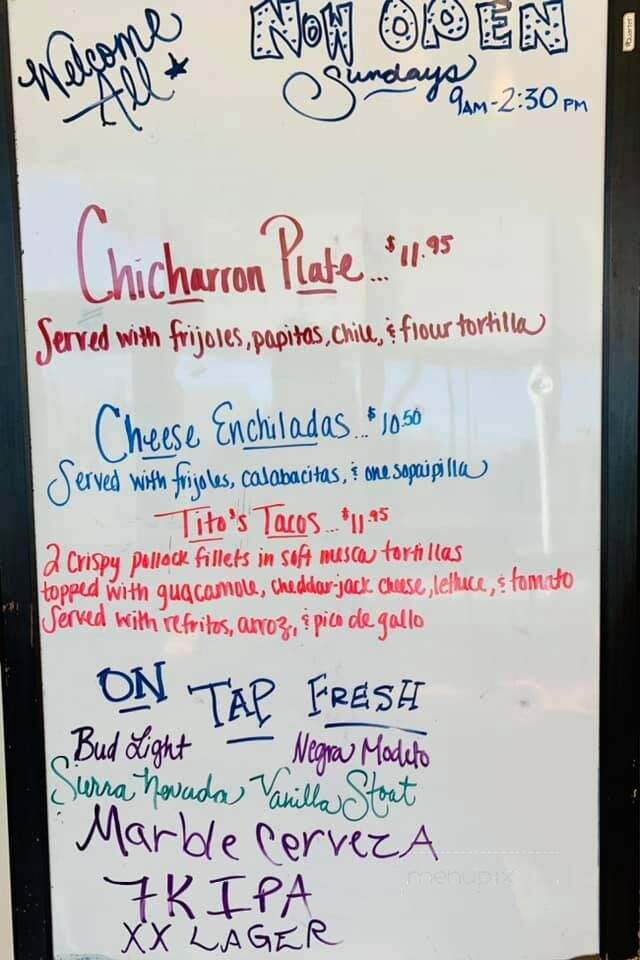 Welcome
All
NOW OPEN
Sundays
9AM-2:30 PM
Chicharron Plate... $11.95
Served with frijoles, papitas, chile, & flour tortilla
Cheese Enchiladas... $10.50
Served with frijoles, calabacitas, & one sopaipilla
Tito's Tacos... $11.95
2 crispy pollock fillets in soft masca tortillas
topped with guacamole, cheddar-jack cheese, lettuce, & tomato
Served with refritos, arroz, & pico de gallo
ON TAP FRESH
Bud Light Negra Modelo
Sierra Nevada Vanilla Stout
Marble Cerveza
7K IPA
XX LAGER
menupix